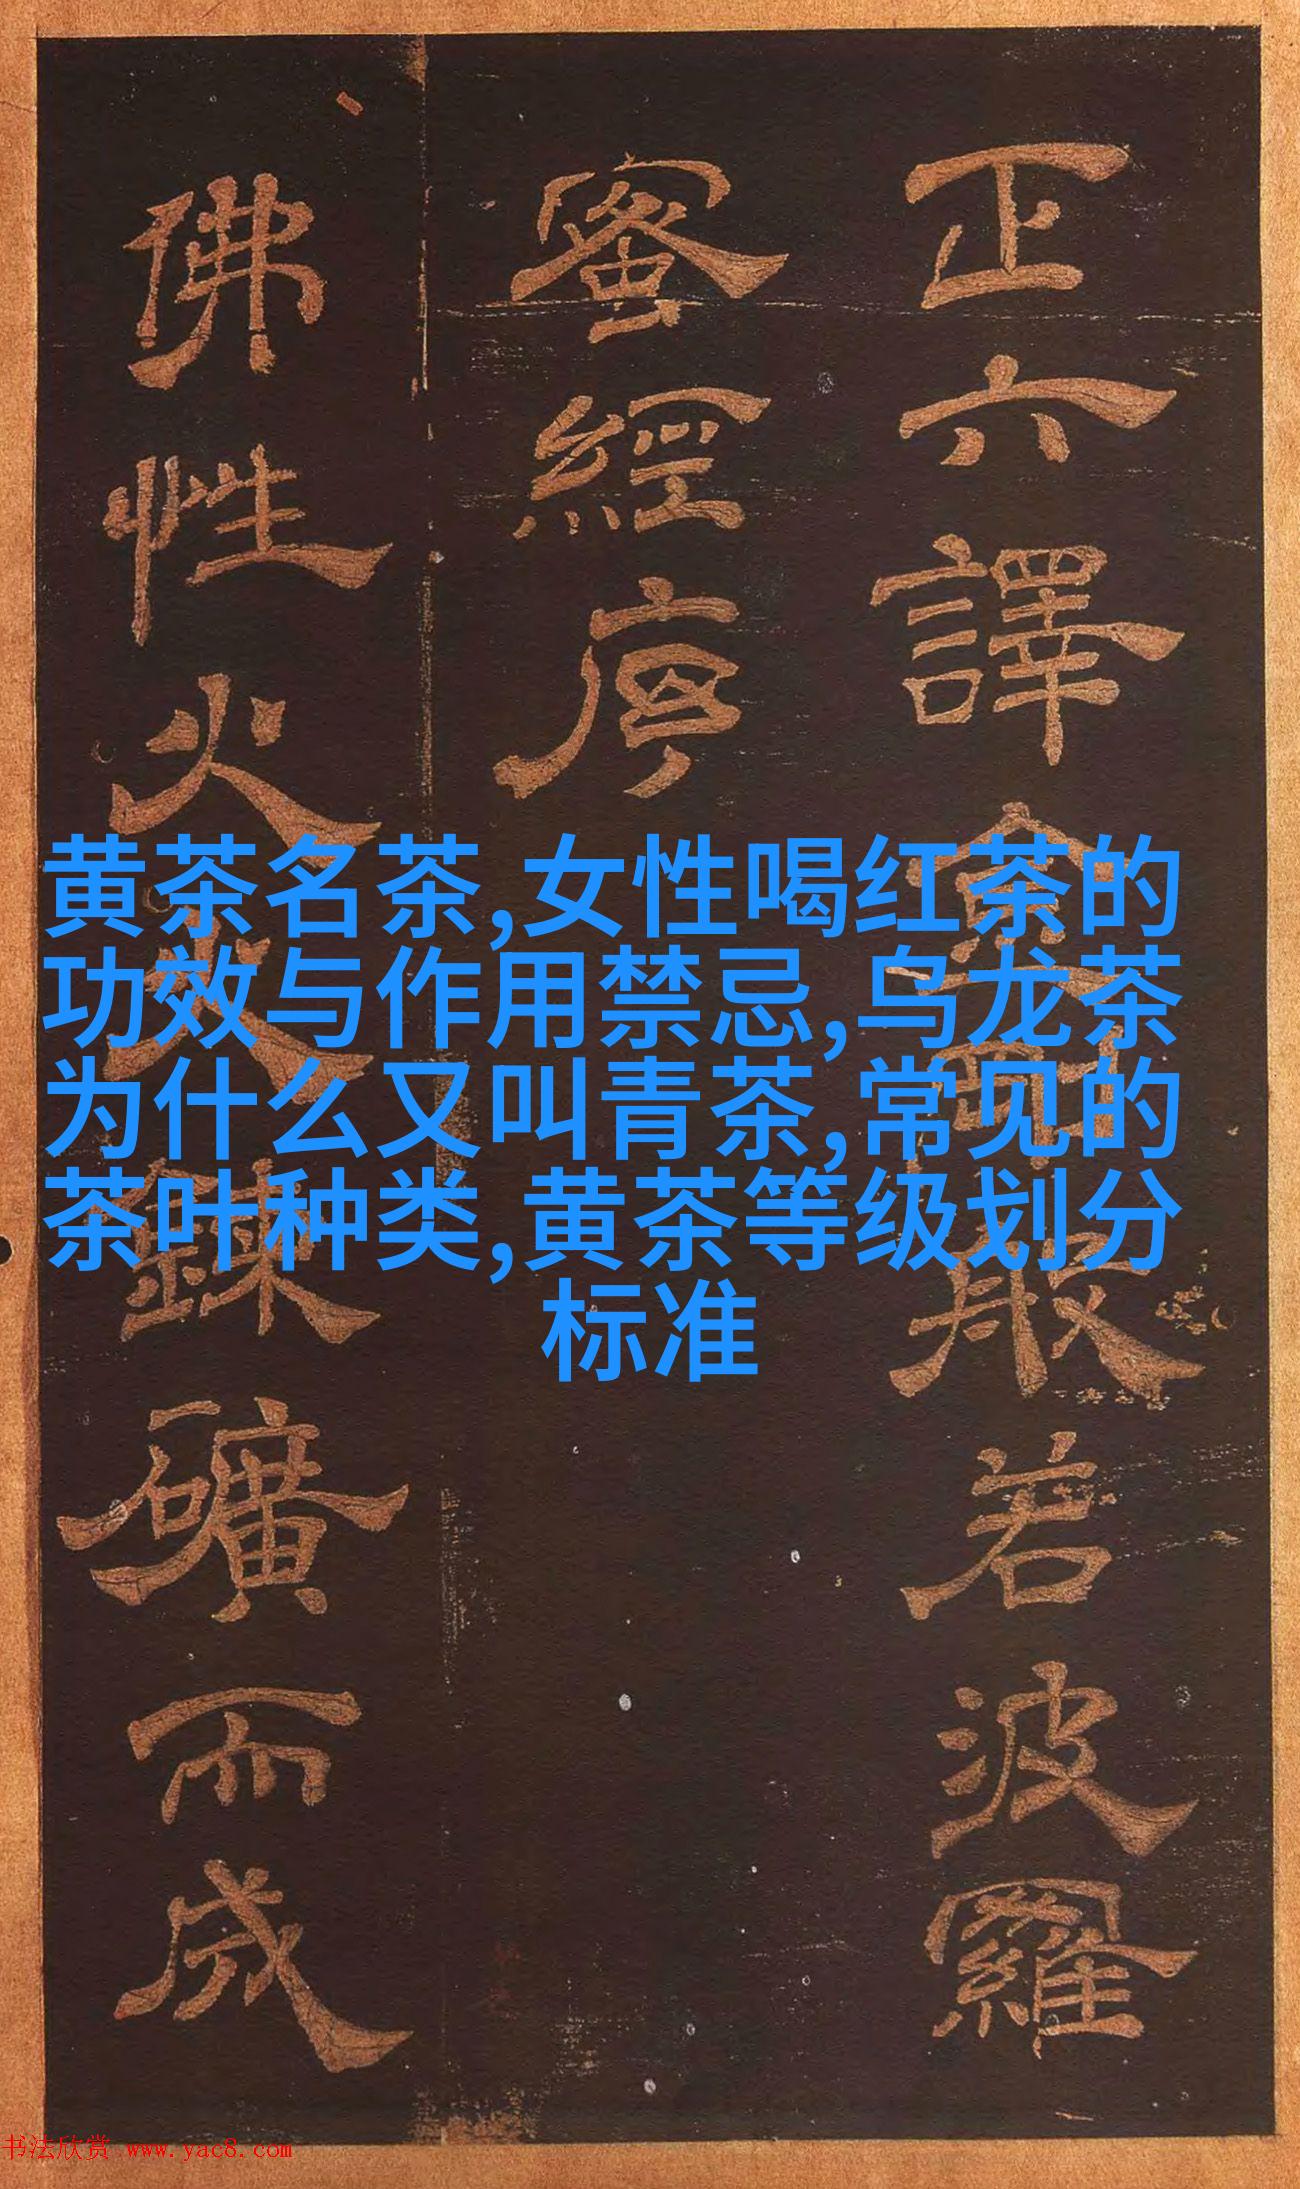 正六譯金剛般若波羅
蜜經序
佛性火鍊礦而成
黄茶名茶,女性喝红茶的
功效与作用禁忌,乌龙茶
为什么又叫青茶,常见的
茶叶种类,黄茶等级划分
标准
书法欣赏 www.yac8.com